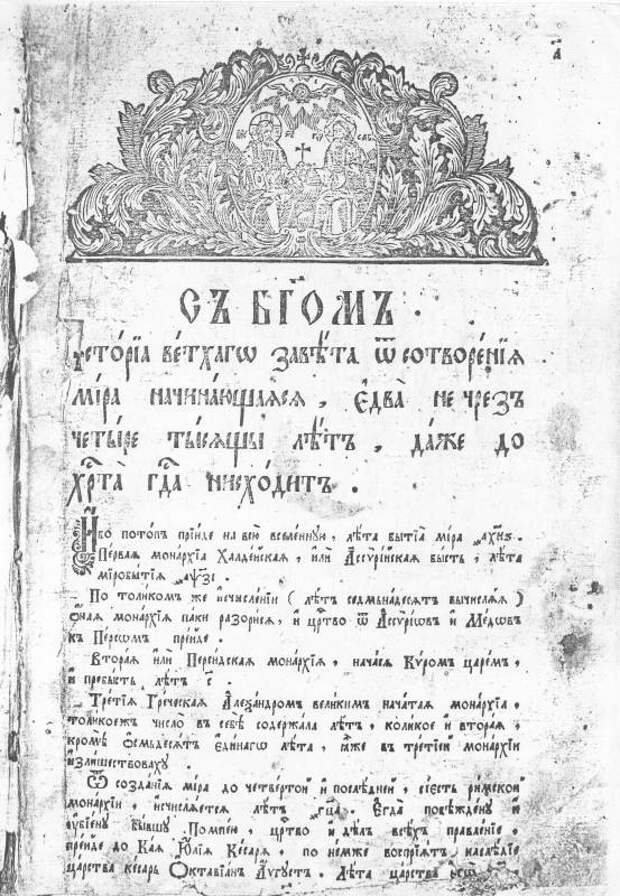 а҃
СЪ БГ҃ОМЪ .
Исто́рїа ве́тхагѡ завѣ́та ѿ сотворе́нїѧ
мі́ра начина́ющаѧсѧ , є҆два̀ не чрезъ
четы́ре ты́сѧщы лѣ́тъ , да́же до
хрⷭ҇та̀ гдⷭ҇а нисхо́дитъ .
И҆бо пото́пъ прїи́де на всю̀ вселе́нную , лѣ́та бытїа̀ мі́ра ҂ахн҃ѕ .
Пе́рваѧ мона́рхїа Халде́йскаѧ , и҆лѝ А҆ссѷрі́йскаѧ бы́сть , лѣ́та
миробытїѧ ҂аѱ҃ѕ .
По толи́комъ же и҆счисле́нїи ( лѣ́тъ се́дмьнадесѧтъ вычислѧѧ )
ѻ҆́наѧ мона́рхїа па́ки разори́сѧ , и҆ црⷭ҇тво ѿ А҆ссѷрі́ѡвъ и҆ Ме́дѡвъ
къ Пе́рсѡмъ пре́йде .
Втора́ѧ и҆лѝ Персі́дскаѧ мона́рхїа , нача́сѧ Кѵ́ромъ царе́мъ ,
и҆ пребы́сть лѣ́тъ с҃ .
Тре́тїѧ Гре́ческаѧ А҆леѯа́ндромъ вели́кимъ нача́таѧ мона́рхїа ,
толи́коежъ число̀ въ себѣ̀ содержа́ла лѣ́тъ , коли́кое и҆ втора́ѧ ,
кромѣ̀ ѻ҆смьдесѧ́тъ є҆ди́нагѡ лѣ́та , ꙗ҆̀же въ тре́тїей мона́рхїи
и҆зли́шествоваху .
Ѿ созда́нїѧ мі́ра до четве́ртой и҆ послѣ́дней , сїе́сть ри́мской
мона́рхїи , и҆счислѧ́етсѧ лѣ́тъ ҂гц҃а . Є҆гда̀ побѣжде́ну и҆
ᲂу҆бїе́ну бы́вшу Помпе́ю , црⷭ҇тво и҆ дѣ́лъ всѣ́хъ правле́нїе ,
пре́йде до Ка́ѧ І҆у́лїѧ Ке́сарѧ , по не́мже воспрїѧ́тъ наслѣ́дїе
ца́рства ке́сарь Ѻ҆ктавїа́нъ А҆́ѵгустъ . Лѣ́та ца́рства